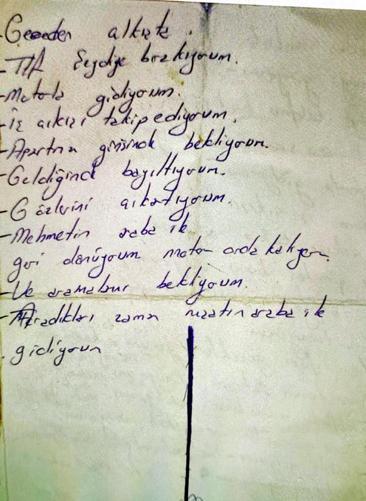 -Geceden
- TIA Seydiye bırakıyorum.
-Motorla gidiyorum.
-İş çıkışı takip ediyorum.
-Apartman girişinde bekliyorum.
-Geldiğinde bayıltıyorum.
-Gözlerini çıkartıyorum.
-Mehmetin araba ile
geri dönüyorum motor orda kalıyor.
-Ve bekliyorum.
-Aradıkları zaman araba ile
gidiyorum